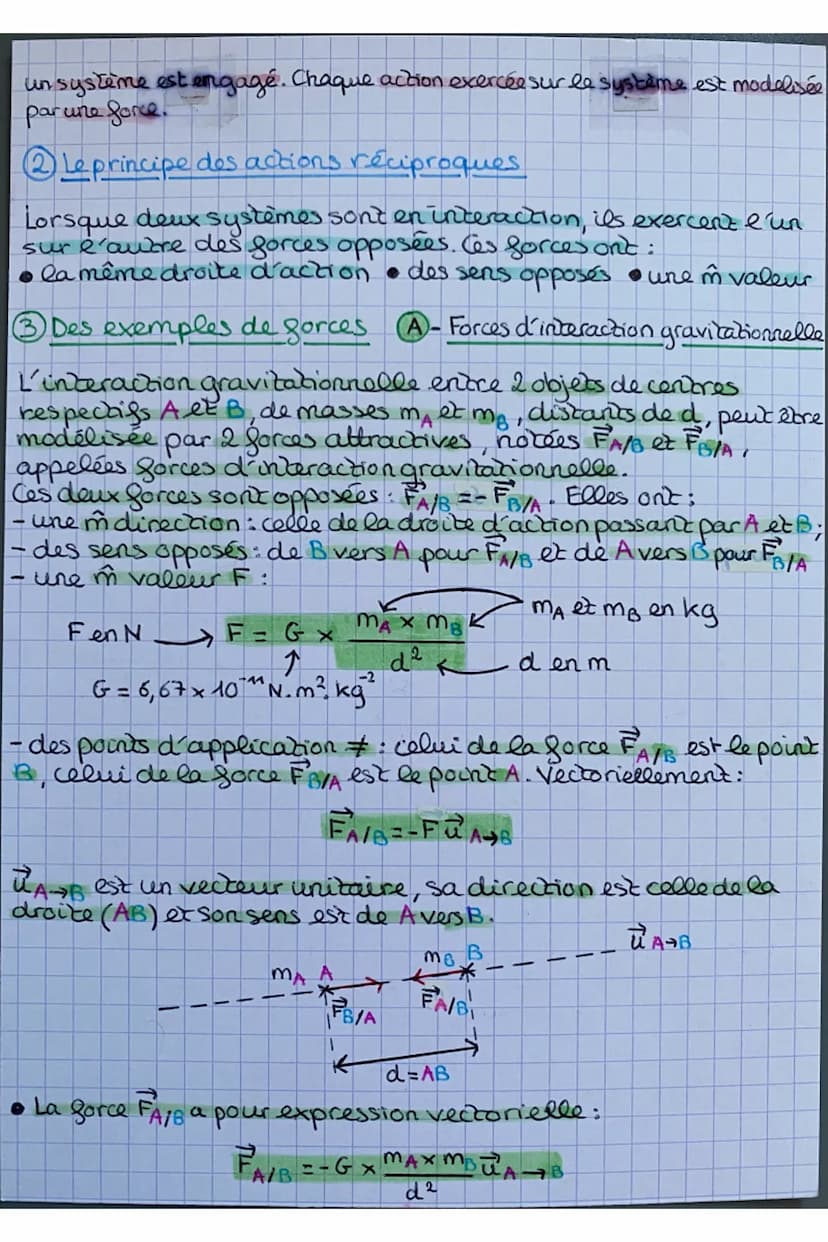 un système est engagé. Chaque action exercée sur le système est modélisée
par une force.
② Le principe des actions réciproques
Lorsque deux systèmes sont en interaction, ils exercent l'un
sur l'autre des forces opposées. Ces forces ont :
• la même droite d'action • des sens opposés • une m̂ valeur
③ Des exemples de forces Ⓐ - Forces d'interaction gravitationnelle
L'interaction gravitationnelle entre 2 objets de centres
respectifs A et B, de masses mA et mB, distants de d, peut être
modélisée par 2 forces attractives, notées F⃗A/B et F⃗B/A,
appelées forces d'interaction gravitationnelle.
Ces deux forces sont opposées : F⃗A/B = - F⃗B/A. Elles ont :
- une m̂ direction : celle de la droite d'action passant par A et B ;
- des sens opposés : de B vers A pour F⃗A/B et de A vers B pour F⃗B/A
- une m̂ valeur F :
mA et mB en kg
F en N → F = G × (mA × mB)/d²
d en m
G = 6,67 × 10⁻¹¹ N.m².kg⁻²
- des points d'application ≠ : celui de la force F⃗A/B est le point
B, celui de la force F⃗B/A est le point A. Vectoriellement :
F⃗A/B = - F u⃗A→B
u⃗A→B est un vecteur unitaire, sa direction est celle de la
droite (AB) et son sens est de A vers B.
u⃗A→B
mB B
mA A
F⃗B/A F⃗A/B
d = AB
• La force F⃗A/B a pour expression vectorielle :
F⃗A/B = - G × (mA × mB)/d² u⃗A→B